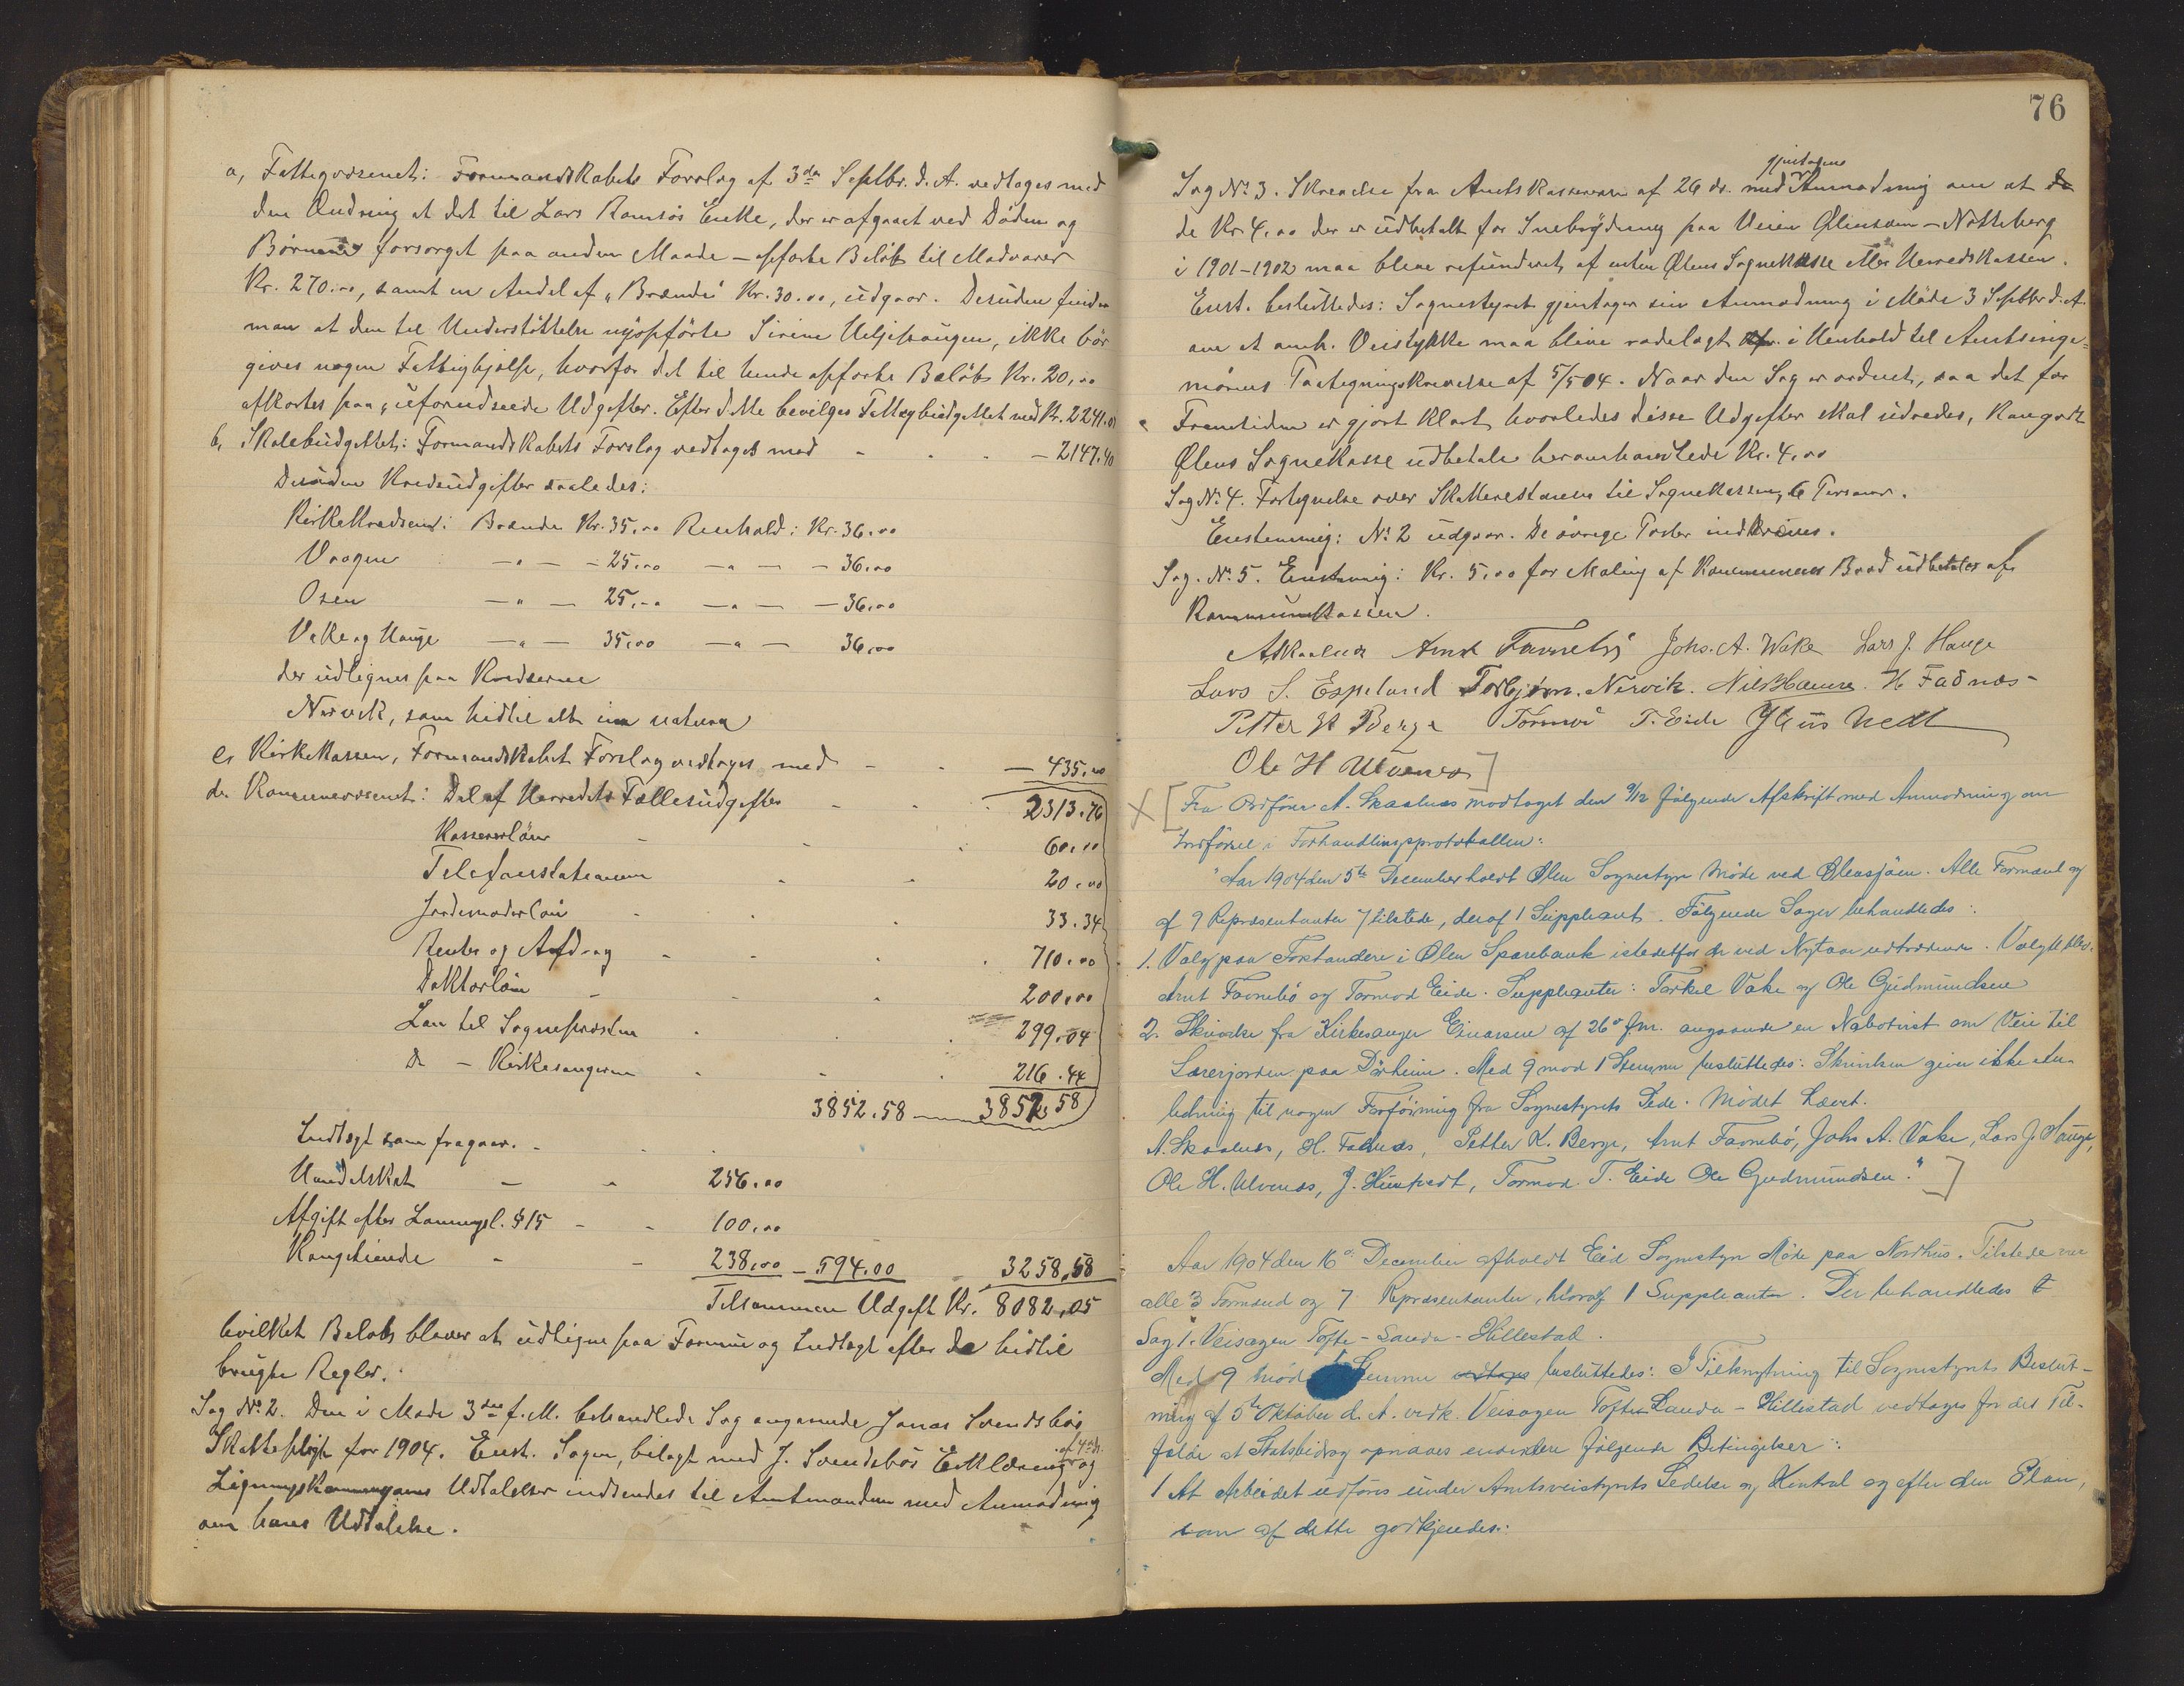 a, Fattigvæsenet: Formandskabets Forslag af 3die Septbr. d. A. vedtoges med
den Ændring at det til Lars Ramsøs Enke, der er afgaaet ved Døden og
Børnene forsørget paa anden Maade – opførte Beløb til Madvarer
Kr. 270.00, samt en Andel af "Brænde" Kr. 30.00, udgaar. Desuden finder
man at den til Understøttelse nyopførte Sirine Heljehaugen, ikke bør
gives nogen Fattighjelp, hvorfor det til hende opførte Beløb Kr. 20,00
afkortes paa "uforudseede Udgifter. Efter dette bevilges Fattigbudgettet med Kr. 2241.07
b, Skolebudgettet: Formandskabets Forslag vedtaget med - - - 2147.40
Desuden Kredsudgifter saaledes:
Kirkekredsen: Brænde Kr. 35.00 Renhold: Kr. 36.00
Vaagen — " — - 25.00 — " — - 36.00
Osen — " — 25.00 — " — - 36.00
Vake og Hauge — " — 35.00 — " — 36,00
der udlignes paa Kredserne
Nervik, som hidtil alt in natura
c, Kirkekassen, Formandskabets Forslag vedtages med - - — 435.00
d, Kommunevæsenet: Del af Herredets Fællesudgifter - - 2313.76
Kassererløn - - - 60.00
Telefonstationen - - 20.00
Jordemoderløn - - - 33.34
Renter og Afdrag - - - 710.00
Doktorløn - - - 200.00
Løn til Sognepresten - - 299.04
Do – Kirkesangeren - - - 216.44
3852.58 — 3852.58
Indtægt som fragaar. - -
Handelskat - - 256.00
Afgift efter Lønningsl. § 15 - - 100.00
Kongetiende - - 238,00 – 594.00 3258,58
Tilsammen Udgift Kr. 8082,05
hvilket Beløb bliver at udligne paa Formue og Indtægt efter de hidtil
brugte Regler.
Sag No. 2. Den i Møde 3die f. M. behandlede Sag angaaende Jonas Svendsbøs
Skattepligt for 1904. Enst. Sagen, bilagt med J. Svendsbøs Erklæring af 4de ds. og
Ligningskommissionens Udtalelser indsendes til Amtmanden med Anmodning
om hans Udtalelse.
76
Sag No. 3. Skrivelse fra Amtskassereren af 26 ds. med gjentagen Anmodning om at
de Kr. 4.00 der er udbetalt for Snebrydning paa Veien Ølensøen – Notteberg
i 1901–1902 maa blive refunderet af enten Ølens Sognekasse eller Herredskassen.
Enst. besluttedes: Sognestyret gjentager sin Anmodning i Møde 3 Septbr. d. A.
om at anh. Veistykke maa blive nedlagt i Henhold til Amtsinge-
niørens Paategningsskrivelse af 5/5 04. Naar den Sag er ordnet, saa det for
Fremtiden er gjort klart hvorledes disse Udgifter skal udredes, kan godt
Ølens Sognekasse udbetale heromhandlede Kr. 4.00
Sag No. 4. Fortegnelse over Skatterestancer til Sognekassen, 6 Personer.
Enstemmig: No. 2 udgaar. De øvrige Poster inddrives.
Sag. No. 5. Enstemmig: Kr. 5.00 for Maling af Kommunens Baad udbetales af
Kommunekassen.
A Skaalnes Arnt Favnebø Johs. A. Wake Lars J. Hauge
Lars S. Espeland Torbjørn Nervik. Nils Hamre. H Fadnæs -
Petter K Berge Tormod T. Eide J Hus tvedt
Ole H Ulvenes ]
X [ Fra Ordfører A. Skaalnes modtaget den 9/12 følgende Afskrift med Anmodning om
Indførsel i Forhandlingsprotokollen:
"Aar 1904 den 5te December holdt Ølen Sognestyre Møde ved Ølensjøen. Alle Formænd og
af 9 Repræsentanter 7 tilstede, deraf 1 Suppleant. Følgende Sager behandledes:
1. Valg paa Forstandere i Ølen Sparebank istedetfor de ved Nytaar udtrædende. Valgte blev:
Arnt Favnebø og Tormod Eide. Suppleanter: Torkel Vake og Ole Gudmundsen
2. Skrivelse fra Kirkesanger Einarsen af 26de f. m. angaaende en Nabotvist om Vei til
Lærerjorden paa Dørheim. Med 9 mod 1 Stemme besluttedes: Skrivelsen giver ikke An-
ledning til nogen Forføining fra Sognestyrets Side. Mødet hævet.
A. Skaalnes, H. Fadnæs, Petter K. Berge, Arnt Favnebø, Johs A. Vake, Lars J. Hauge,
Ole H. Ulvenæs, J. Hustvedt, Tormod T. Eide Ole Gudmundsen." ]
Aar 1904 den 16de December afholdt Eid Sognestyre Møde paa Nordhus. Tilstede var
alle 3 Formænd og 7 Repræsentanter, hvoraf 1 Suppleanter. Der behandledes
Sag 1. Veisagen Tofte – Sanda – Hillestad.
Med 9 mod 1 Stemme vedtages besluttedes: I Tilknytning til Sognestyrets Beslut-
ning af 5te Oktober d. A. vedk. Veisagen Tofte Sanda – Hillestad vedtages for det Til-
fælde at Statsbidrag opnaaes endvidere følgende Betingelser:
1 At Arbeidet udføres under Amtsveistyrets Ledelse og Kontrol og efter den Plan,
som af dette godkjendes: